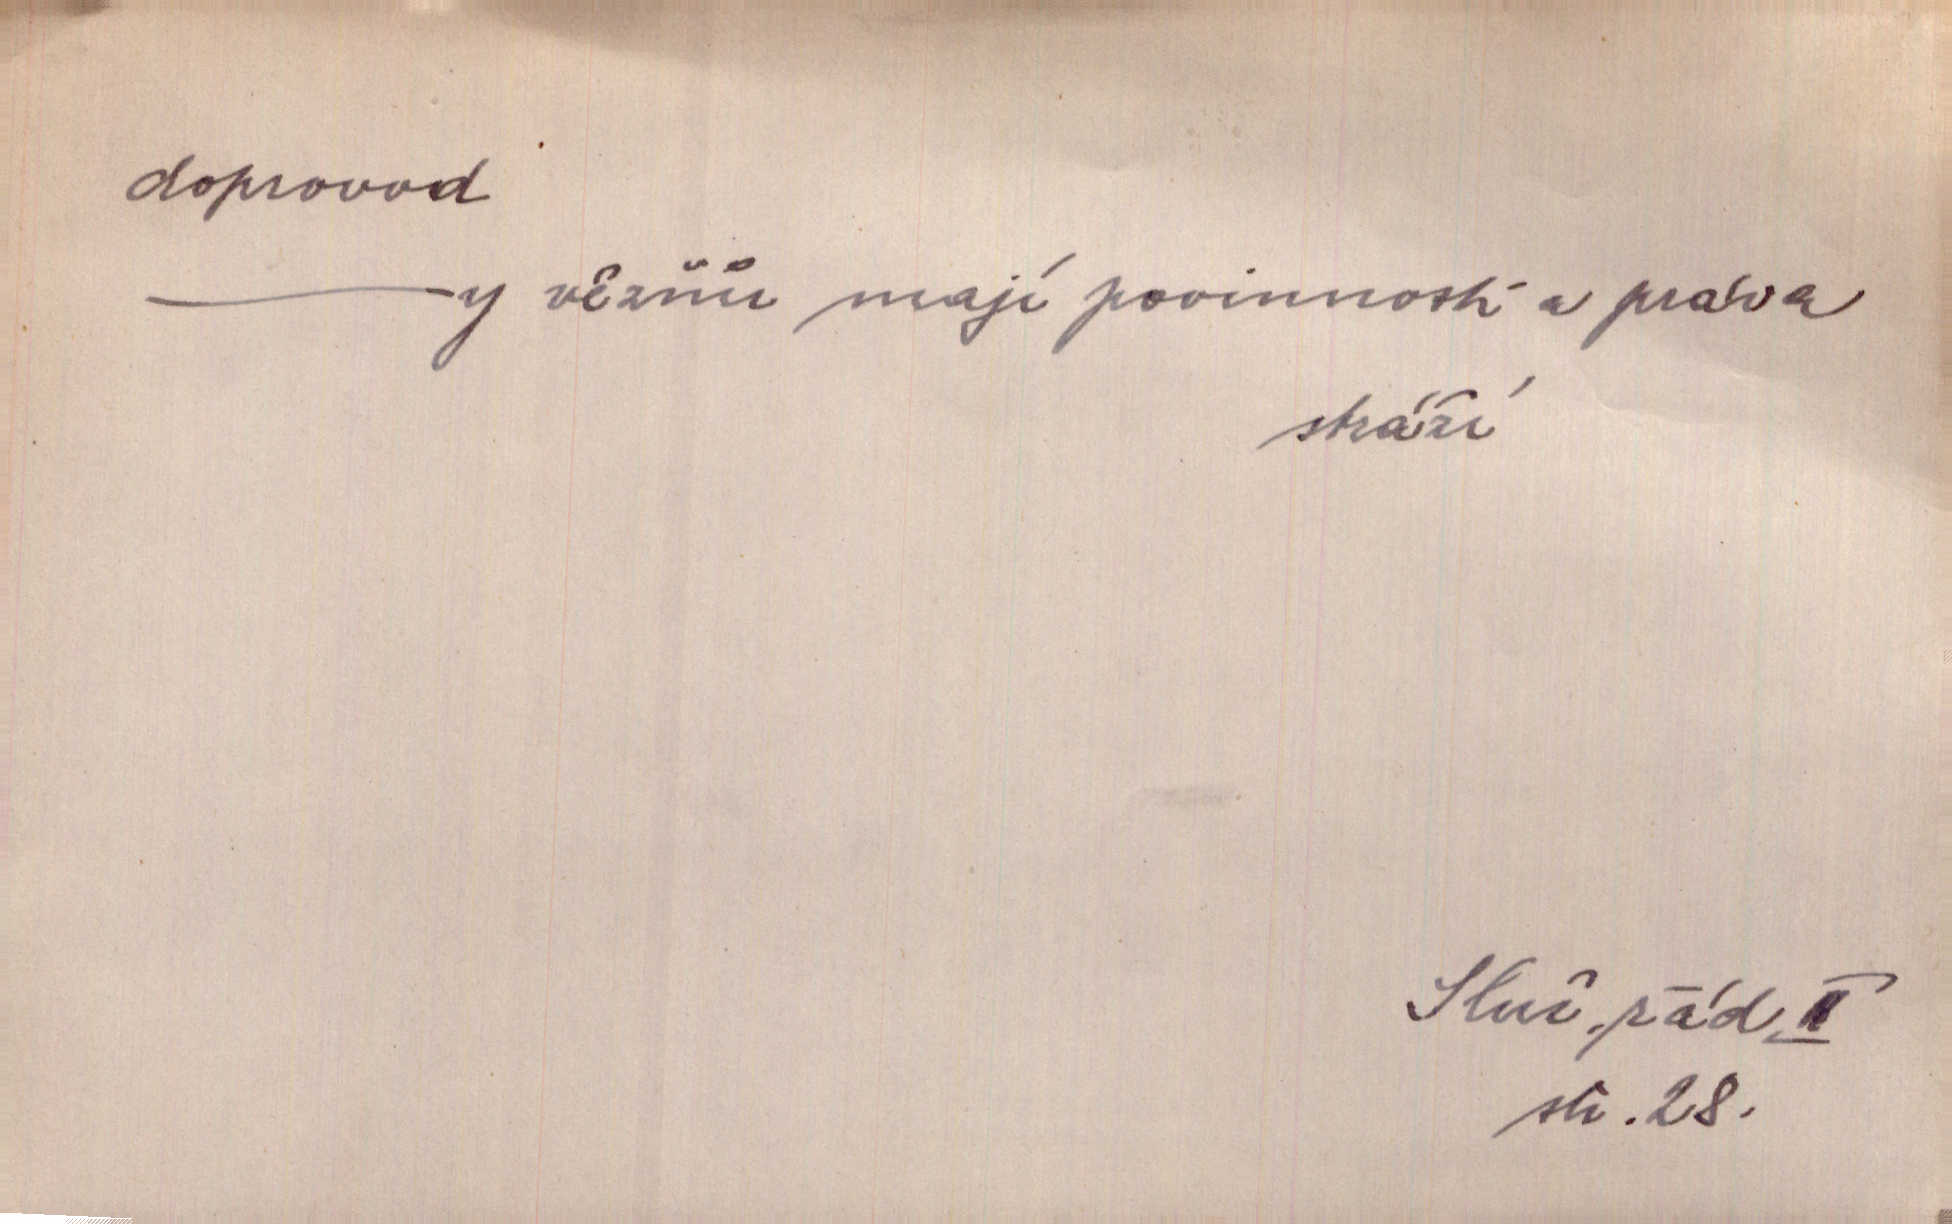 doprovod
———y vězňů mají povinnosti a práva
stráží
Služ. řád II
str. 28.